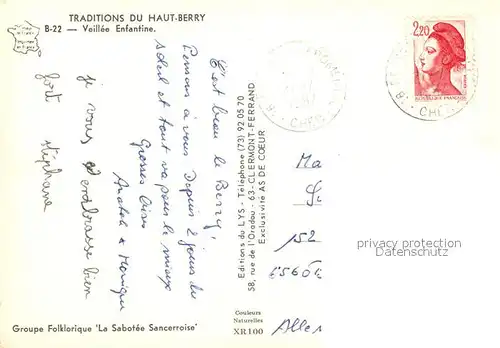 TRADITIONS DU HAUT-BERRY
B-22 — Veillée Enfantine.
C'est beau le Berry!
Pensons à vous Depuis 2 jours du
soleil et tout va pour le mieux
Grosses bises
Anatole & Monique
je vous embrasse bien
fort stéphane
Editions du LYS - Téléphone (73) 92 05 70
58, rue de l'Oradou - 63-CLERMONT-FERRAND
Exclusivité AS DE CŒUR
2,20
RÉPUBLIQUE FRANÇAISE
CHER
CHER
Ma
152
privacy protection
Datenschutz
Couleurs
Naturelles
XR100
Groupe Folklorique 'La Sabotée Sancerroise'